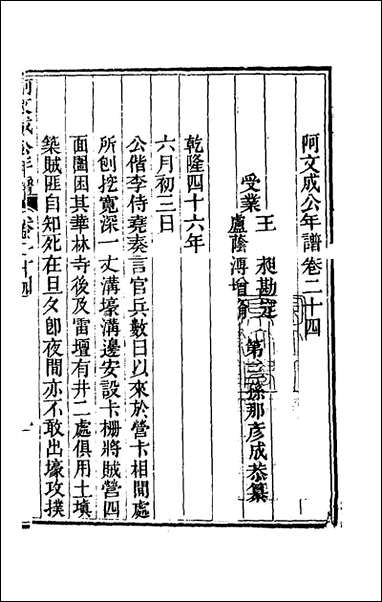 阿文成公年譜卷二十四
受業
王昶勘定
盧蔭溥增修
第三孫那彥成恭纂
乾隆四十六年
六月初三日
公偕李侍堯奏言官兵數日以來於營卡相間處
所刨挖寬深一丈溝壕溝邊安設卡柵將賊營四
面圍困其華林寺後及雷壇有井二處俱用土填
築賊匪自知死在旦夕卽夜間亦不敢出壕攻撲
阿文成公年譜
卷二十四
一